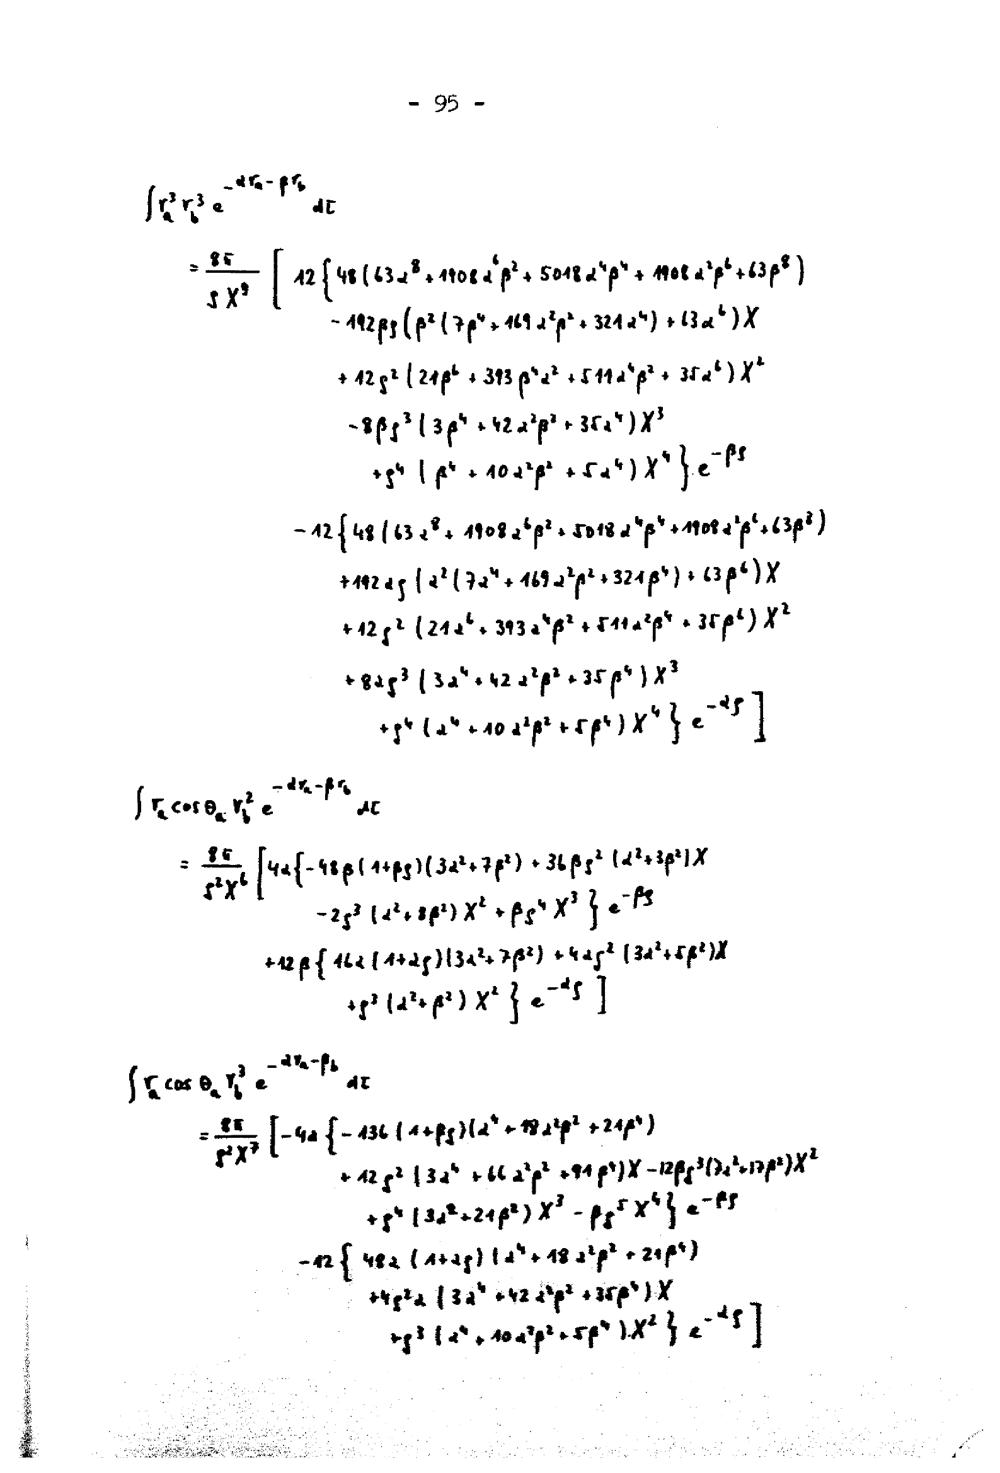 - 95 -
∫ r_a^3 r_b^3 e^{-αr_a - βr_b} dτ
= 8π / ρX^9 [ 12 { 48 (63α^8 + 1908α^6β^2 + 5018α^4β^4 + 1908α^2β^6 + 63β^8)
- 192βρ (β^2 (7β^4 + 169α^2β^2 + 321α^4) + 63α^6) X
+ 12ρ^2 (21β^6 + 393β^4α^2 + 511α^4β^2 + 35α^6) X^2
- 8βρ^3 (3β^4 + 42α^2β^2 + 35α^4) X^3
+ ρ^4 (β^4 + 10α^2β^2 + 5α^4) X^4 } e^{-βρ}
- 12 { 48 (63α^8 + 1908α^6β^2 + 5018α^4β^4 + 1908α^2β^6 + 63β^8)
+ 192αρ (α^2 (7α^4 + 169α^2β^2 + 321β^4) + 63β^6) X
+ 12ρ^2 (21α^6 + 393α^4β^2 + 511α^2β^4 + 35β^6) X^2
+ 8αρ^3 (3α^4 + 42α^2β^2 + 35β^4) X^3
+ ρ^4 (α^4 + 10α^2β^2 + 5β^4) X^4 } e^{-αρ} ]
∫ r_a cos θ_a r_b^2 e^{-αr_a - βr_b} dτ
= 8π / ρ^2X^6 [ 4α { - 48β (1+βρ)(3α^2 + 7β^2) + 36βρ^2 (α^2 + 3β^2) X
- 2ρ^3 (α^2 + 8β^2) X^2 + βρ^4 X^3 } e^{-βρ}
+ 12β { 16α (1+αρ)(3α^2 + 7β^2) + 4αρ^2 (3α^2 + 5β^2) X
+ ρ^3 (α^2 + β^2) X^2 } e^{-αρ} ]
∫ r_a cos θ_a r_b^3 e^{-αr_a - β_b} dτ
= 8π / ρ^2X^7 [ - 4α { - 136 (1+βρ)(α^4 + 18α^2β^2 + 21β^4)
+ 12ρ^2 (3α^4 + 66α^2β^2 + 91β^4) X - 12βρ^3 (7α^2 + 17β^2) X^2
+ ρ^4 (3α^2 + 21β^2) X^3 - βρ^5 X^4 } e^{-βρ}
- 12 { 48α (1+αρ) (α^4 + 18α^2β^2 + 21β^4)
+ 4ρ^2α (3α^4 + 42α^2β^2 + 35β^4) X
+ ρ^3 (α^4 + 10α^2β^2 + 5β^4) X^2 } e^{-αρ} ]